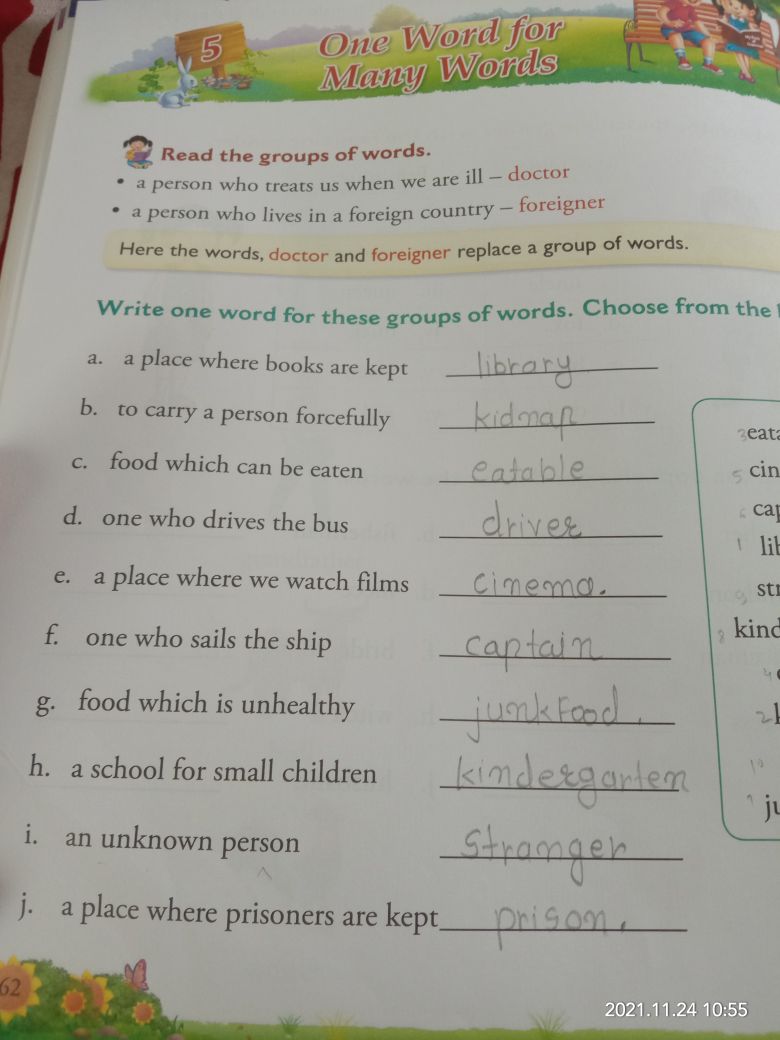 5
One Word for
Many Words
Read the groups of words.
• a person who treats us when we are ill – doctor
• a person who lives in a foreign country – foreigner
Here the words, doctor and foreigner replace a group of words.
Write one word for these groups of words. Choose from the
a. a place where books are kept library
b. to carry a person forcefully kidnap
3 eata
c. food which can be eaten eatable
5 cin
d. one who drives the bus driver
6 cap
1 lib
e. a place where we watch films cinema.
9 str
f. one who sails the ship captain
8 kind
4
g. food which is unhealthy junk Food.
2 k
h. a school for small children kindergarten
10
7 ju
i. an unknown person stranger
j. a place where prisoners are kept prison.
62
2021.11.24 10:55